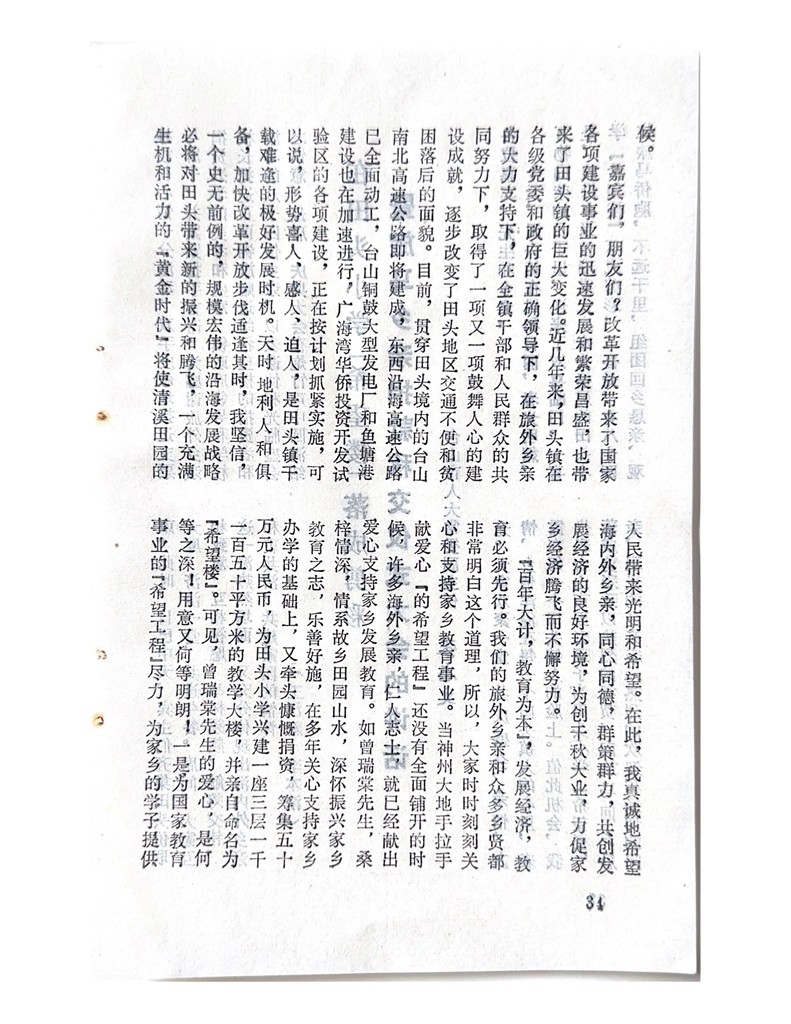 候。
“嘉宾们，朋友们？改革开放带来了国家
各项建设事业的迅速发展和繁荣昌盛田也带
来了田头镇的巨大变化。近几年来，田头镇在
各级党委和政府的正确领导下，在旅外乡亲
的大力支持下，在全镇干部和人民群众的共
同努力下，取得了一项又一项鼓舞人心的建
设成就，逐步改变了田头地区交通不便和贫
困落后的面貌。目前，贯穿田头境内的台山
南北高速公路即将建成，东西沿海高速公路
已全面动工，台山铜鼓大型发电厂和鱼塘港
建设也在加速进行，广海湾华侨投资开发试
验区的各项建设，正在按计划抓紧实施，可
以说，形势喜人、感人、迫人，是田头镇千
载难逢的极好发展时机。天时地利人和俱
备，加快改革开放步伐通逢其时，我坚信，
一个史无前例的、规模宏伟的沿海发展战略
必将对田头带来新的振兴和腾飞，一个充满
生机和活力的『黄金时代』将使清溪田园的
人民带来光明和希望。在此，我真诚地希望
海内外乡亲，同心同德，群策群力，共创发
展经济的良好环境，为创千秋大业，力促家
乡经济腾飞而不懈努力。
『百年大计，教育为本』，发展经济，教
育必须先行。我们的旅外乡亲和众多乡贤都
非常明白这个道理，所以，大家时时刻刻关
心和支持家乡教育事业。当神州大地手拉手
献爱心『的希望工程』还没有全面铺开的时
候，许多海外乡亲，仁人志士，就已经献出
爱心支持家乡发展教育。如曾瑞棠先生，桑
梓情深，情系故乡田园山水，深怀振兴家乡
教育之志，乐善好施，在多年关心支持家乡
办学的基础上，又牵头慷慨捐资，筹集五十
万元人民币，为田头小学兴建一座三层一千
一百五十平方米的教学大楼，并亲自命名为
『希望楼』。可见，曾瑞棠先生的爱心，是何
等之深！用意又何等明朗！一是为国家教育
事业的『希望工程』尽力，为家乡的学子提供
34